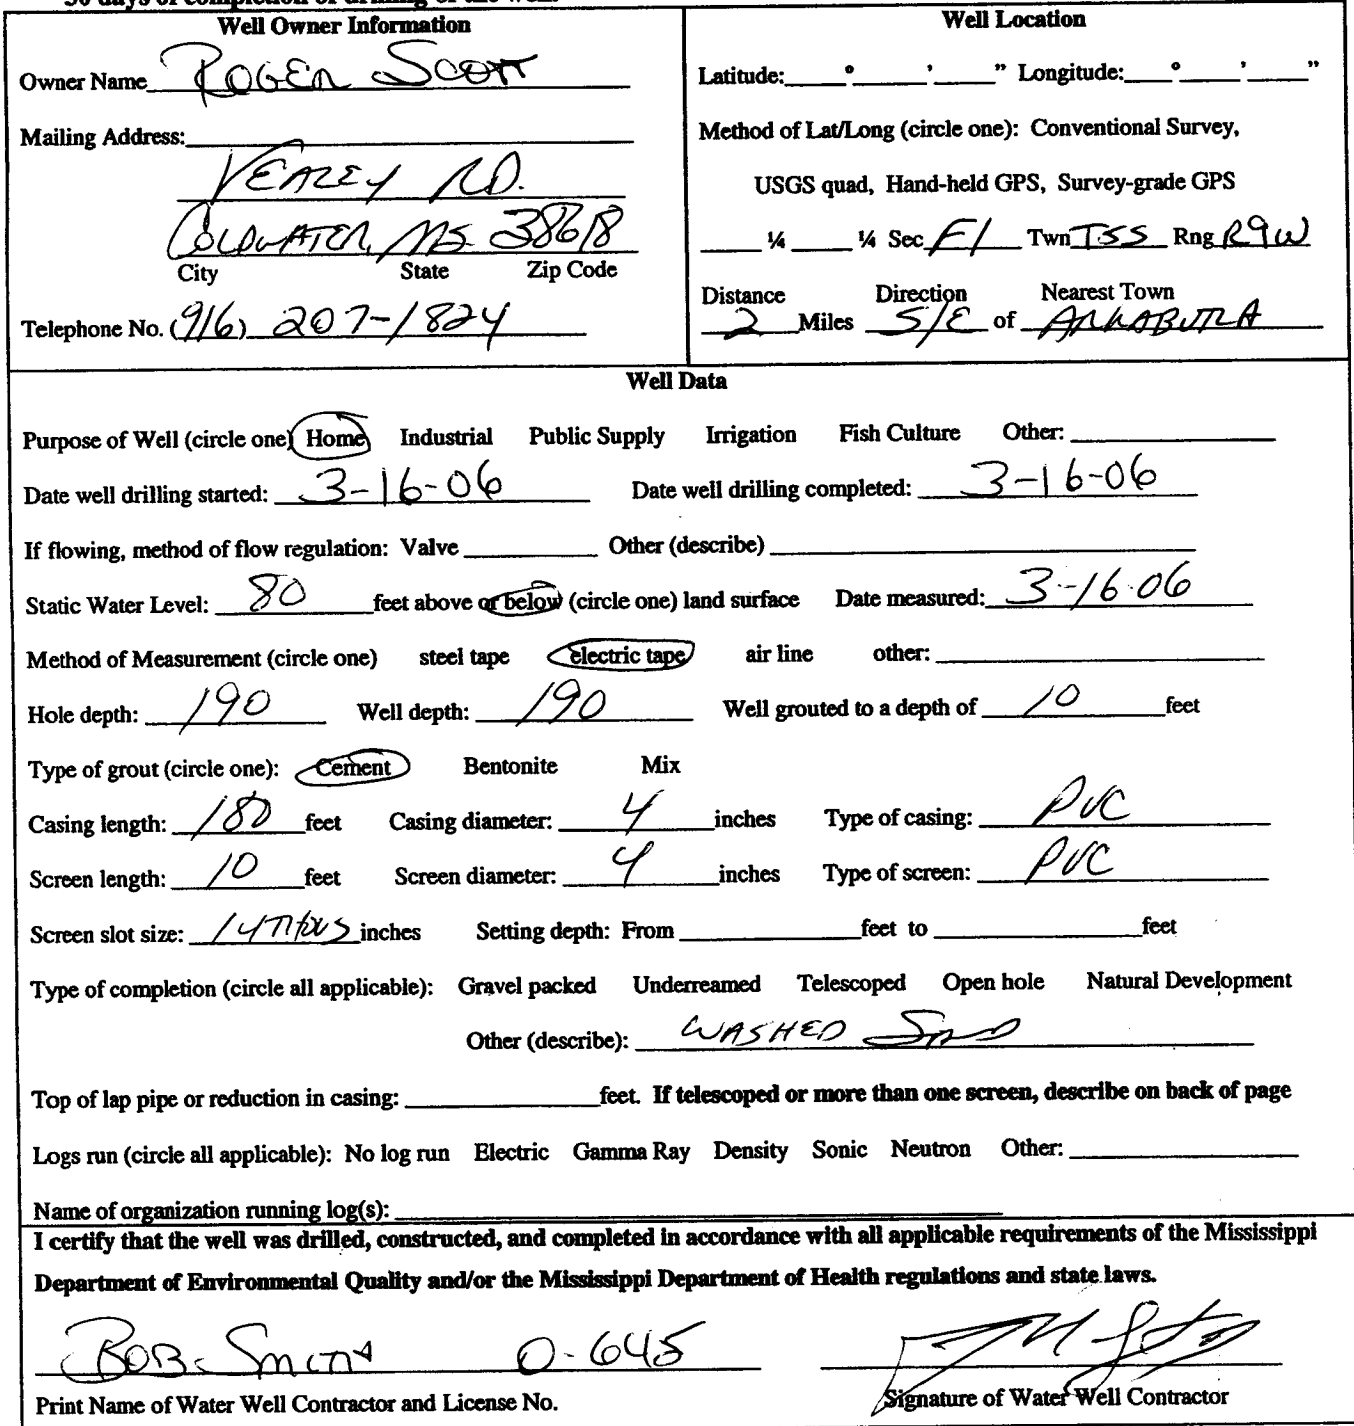 30 days of completion of drilling of the well.
Well Owner Information
Owner Name ROGER SCOTT
Mailing Address:
VEAZEY RD.
COLDWATER, MS 38618
City State Zip Code
Telephone No. (916) 207-1824
Well Location
Latitude: ° ' " Longitude: ° ' "
Method of Lat/Long (circle one): Conventional Survey,
USGS quad, Hand-held GPS, Survey-grade GPS
¼ ¼ Sec Twn T5S Rng R9W
Distance Direction Nearest Town
2 Miles S/E of ARKABUTLA
Well Data
Purpose of Well (circle one) Home Industrial Public Supply Irrigation Fish Culture Other:
Date well drilling started: 3-16-06 Date well drilling completed: 3-16-06
If flowing, method of flow regulation: Valve Other (describe)
Static Water Level: 80 feet above or below (circle one) land surface Date measured: 3-16-06
Method of Measurement (circle one) steel tape electric tape air line other:
Hole depth: 190 Well depth: 190 Well grouted to a depth of 10 feet
Type of grout (circle one): Cement Bentonite Mix
Casing length: 180 feet Casing diameter: 4 inches Type of casing: PVC
Screen length: 10 feet Screen diameter: 4 inches Type of screen: PVC
Screen slot size: inches Setting depth: From feet to feet
Type of completion (circle all applicable): Gravel packed Underreamed Telescoped Open hole Natural Development
Other (describe): WASHED SAND
Top of lap pipe or reduction in casing: feet. If telescoped or more than one screen, describe on back of page
Logs run (circle all applicable): No log run Electric Gamma Ray Density Sonic Neutron Other:
Name of organization running log(s):
I certify that the well was drilled, constructed, and completed in accordance with all applicable requirements of the Mississippi
Department of Environmental Quality and/or the Mississippi Department of Health regulations and state laws.
BOB SMITH 0-645
Print Name of Water Well Contractor and License No.
Signature of Water Well Contractor